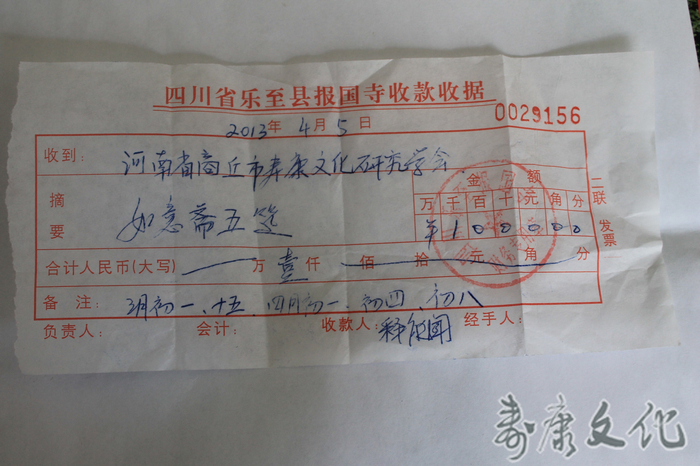 四川省乐至县报国寺收款收据
0029156
2013年 4月 5日
收到: 河南省商丘市寿康文化研究学会
摘要 如意斋五筵
金额
万千百十元角分
¥100000
二联 发票
合计人民币(大写) 万 壹仟 佰 拾 元 角 分
备注: 三月初一、十五、四月初一、初四、初八
负责人: 会计: 收款人: 经手人:
寿康文化